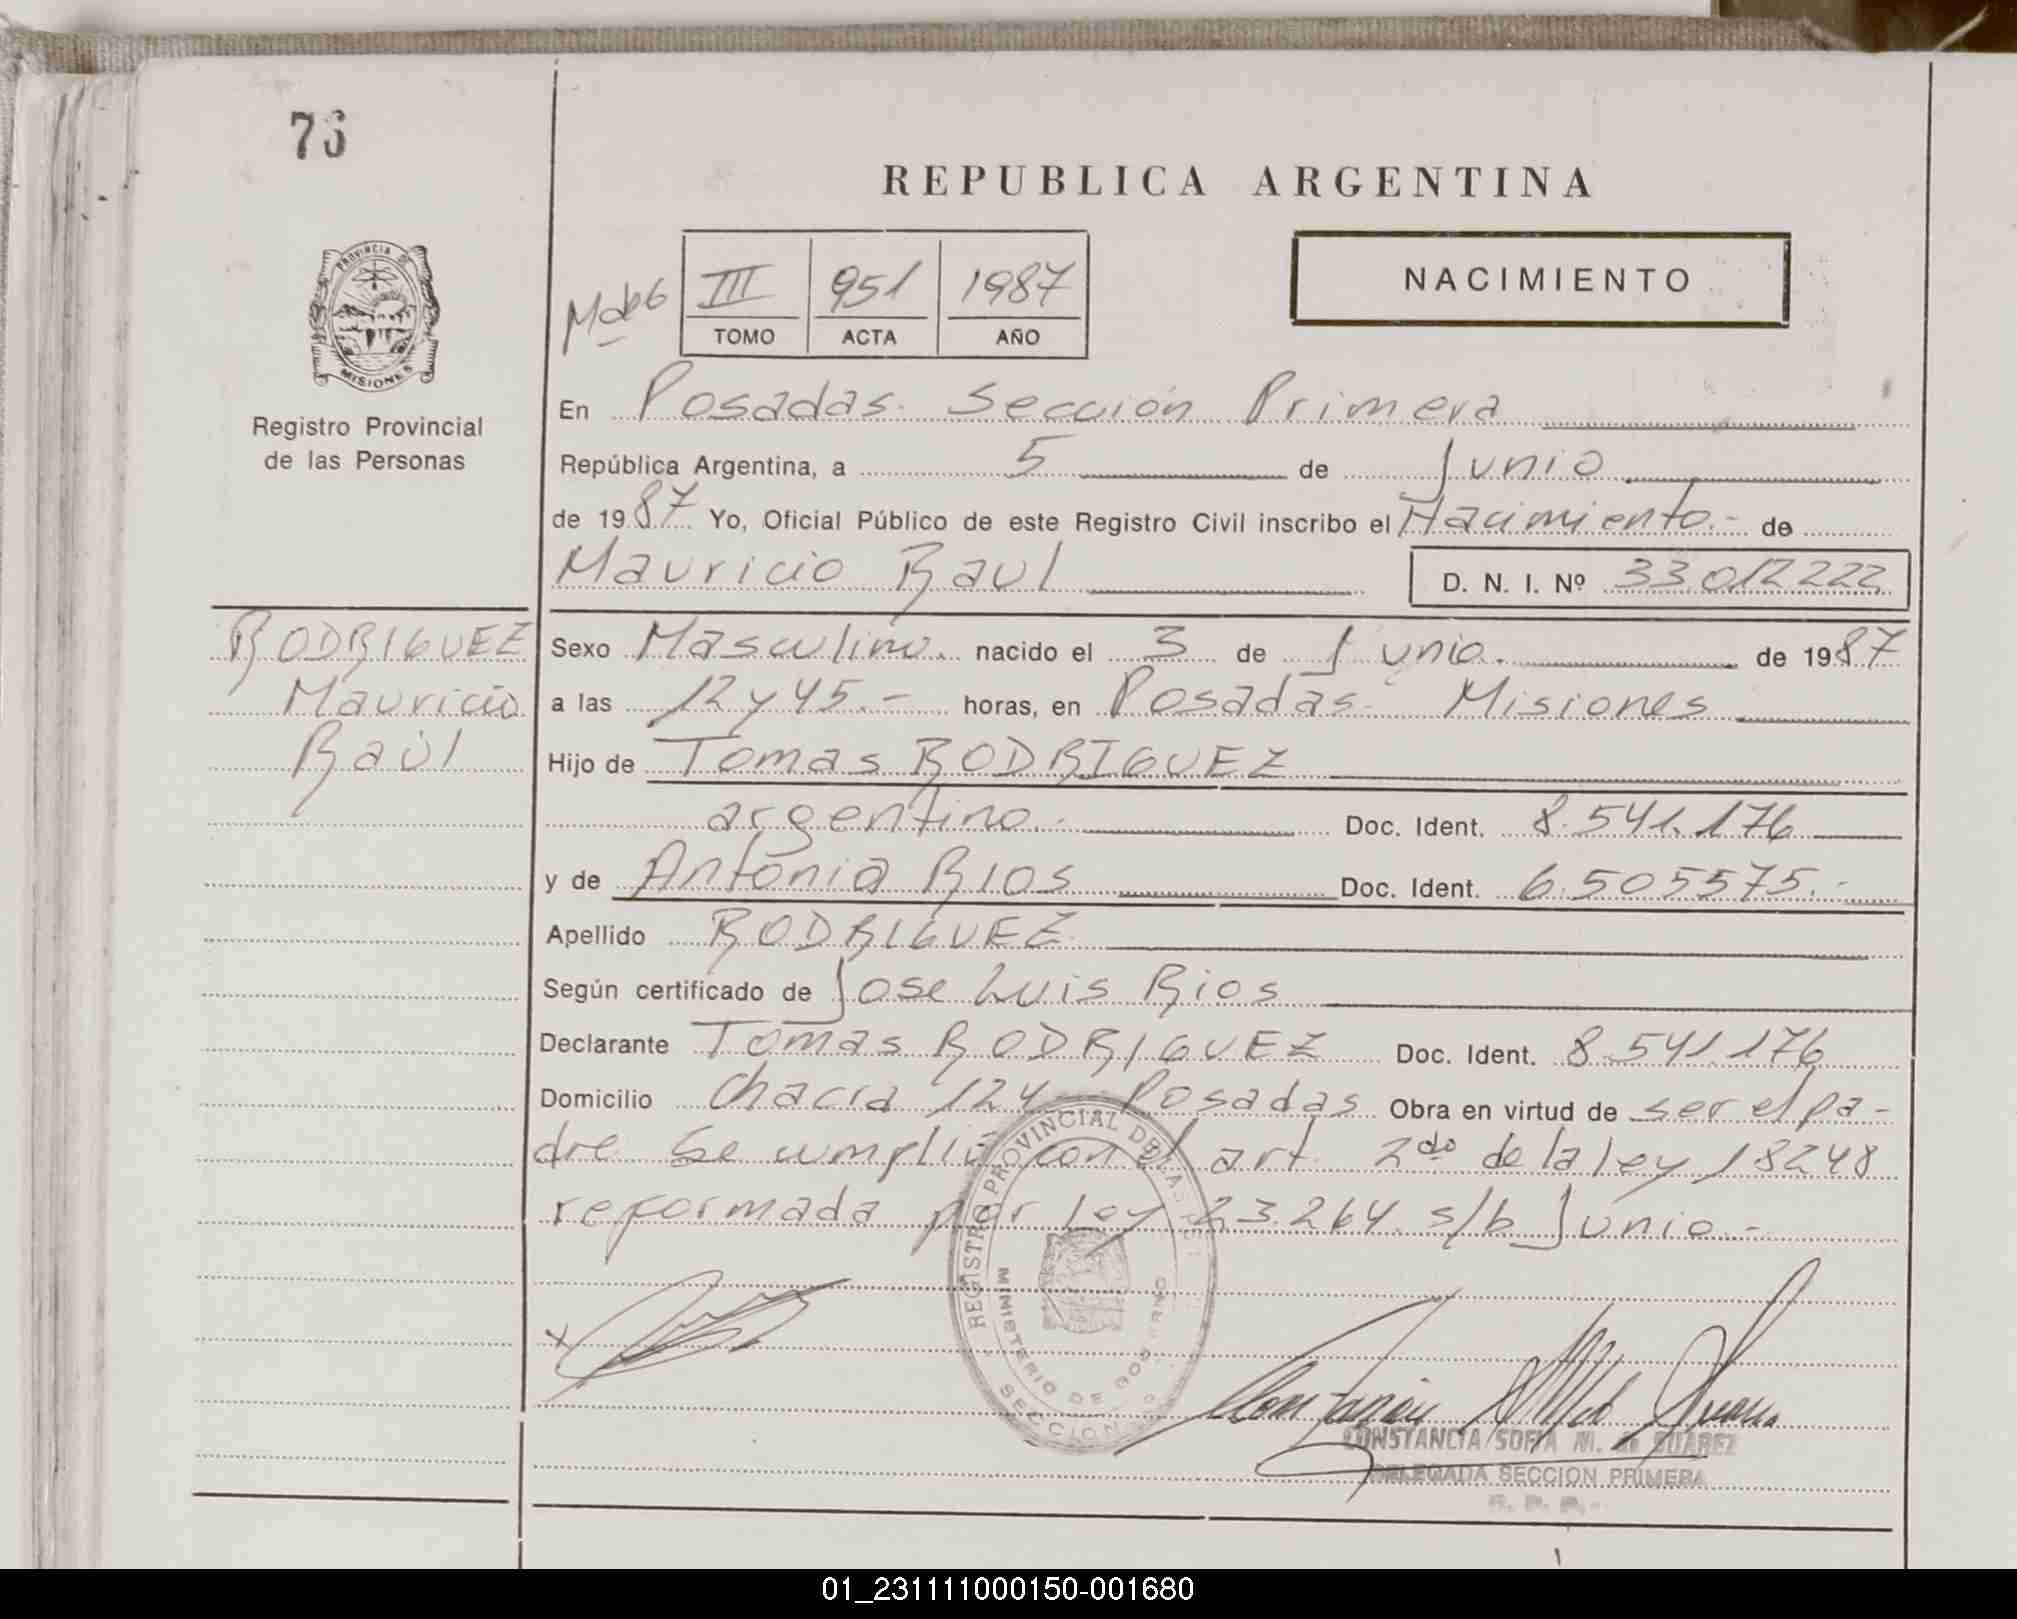 76
REPUBLICA ARGENTINA
PROVINCIA DE
MISIONES
Registro Provincial
de las Personas
III 951 1987
TOMO ACTA AÑO
NACIMIENTO
En Posadas. Sección Primera
República Argentina, a 5 de Junio
de 1987 Yo, Oficial Público de este Registro Civil inscribo el Nacimiento.- de
Mauricio Raul D. N. I. Nº 33.012.222
RODRIGUEZ
Mauricio
Raúl
Sexo Masculino. nacido el 3 de Junio. de 1987
a las 12 y 45.- horas, en Posadas- Misiones
Hijo de Tomas RODRIGUEZ
argentino.- Doc. Ident. 8.541.176
y de Antonia RIOS Doc. Ident. 6.505575.-
Apellido RODRIGUEZ
Según certificado de Jose Luis Rios
Declarante Tomas RODRIGUEZ Doc. Ident. 8.541.176
Domicilio Chacra 124 Posadas Obra en virtud de ser el pa-
dre Se cumplió con el art. 2do de la ley 18248
reformada por ley 23.264. s/b Junio.-
REGISTRO PROVINCIAL DE LAS
MINISTERIO DE GOBIERNO
SECCION
CONSTANCIA SOFIA M. de SUAREZ
DELEGADA SECCION PRIMERA
R. P. P.
01_231111000150-001680